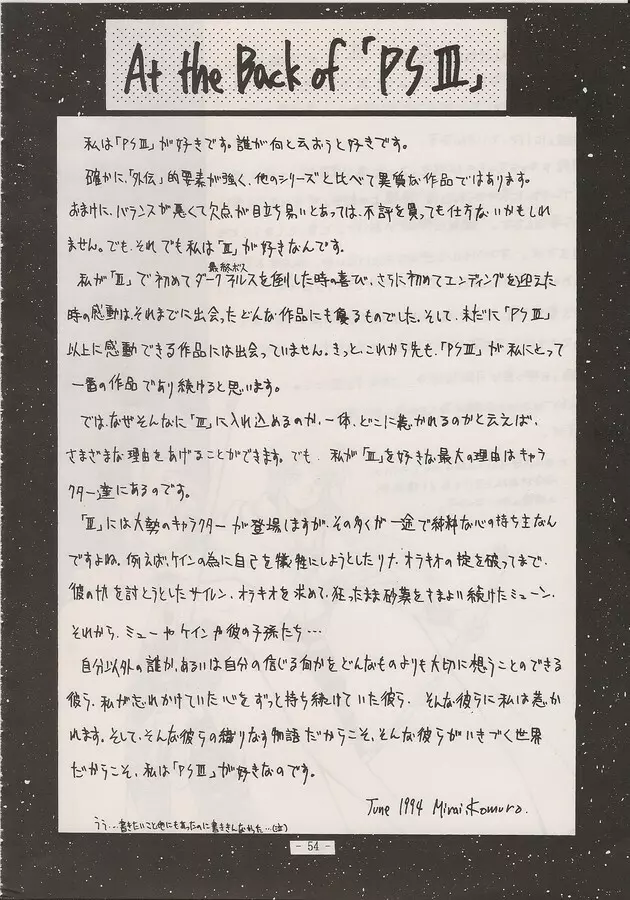 At the Back of「PSⅢ」
私は「PSⅢ」が好きです。誰が何と云おうと好きです。
確かに、「外伝」的要素が強く、他のシリーズと比べて異質な作品ではあります。
おまけに、バランスが悪くて欠点が目立ち易いとあっては、不評を買っても仕方ないかもしれ
ません。でも、それでも私は「Ⅲ」が好きなんです。
最終ボス
私が「Ⅲ」で初めてダークネルスを倒した時の喜び、さらに初めてエンディングを迎えた
時の感動は、それまでに出会ったどんな作品にも優るものでした。そして、未だに「PSⅢ」
以上に感動できる作品には出会っていません。きっと、これから先も、「PSⅢ」が私にとって
一番の作品であり続けると思います。
では、なぜそんなに「Ⅲ」に入れ込めるのか、一体、どこに惹かれるのかと云えば、
さまざまな理由をあげることができます。でも、私が「Ⅲ」を好きな最大の理由はキャラ
クター達にあるのです。
「Ⅲ」には大勢のキャラクターが登場しますが、その多くが一途で純粋な心の持ち主なん
ですよね。例えば、ケインの為に自己を犠牲にしようとしたリナ、オラキオの掟を破ってまで、
彼の仇を討とうとしたサイレン、オラキオを求めて、狂ったまま砂漠をさまよい続けたミューン、
それから、ミューやケインや彼の子孫たち…
自分以外の誰か、あるいは自分の信じる何かをどんなものよりも大切に想うことのできる
彼ら、私が忘れかけていた心をずっと持ち続けていた彼ら、そんな彼らに私は惹か
れます。そして、そんな彼らの織りなす物語だからこそ、そんな彼らがいきづく世界
だからこそ、私は「PSⅢ」が好きなのです。
June 1994 Mirai.Komuro.
うぅ…書きたいこと他にもあったのに書ききれなかった…(泣)
- 54 -